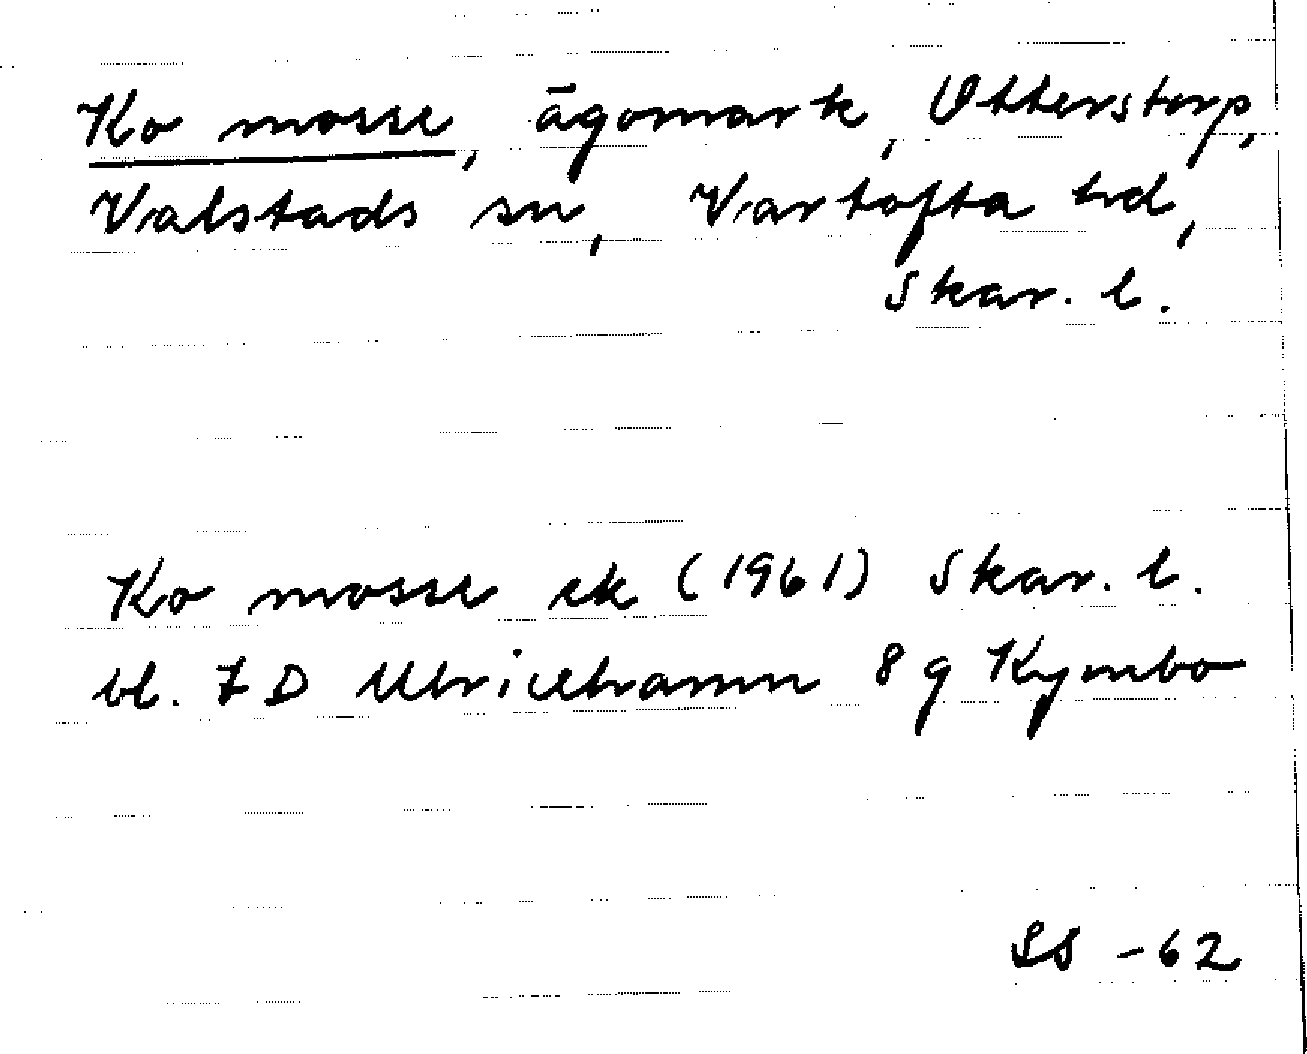 Ko mosse, ägomark, Utterstorp,
Valstads sn, Vartofta hd,
Skar. l.
Ko mosse ek (1961) Skar. l.
bl. 7 D Ulricehamn 8 g Kymbo
SS -62